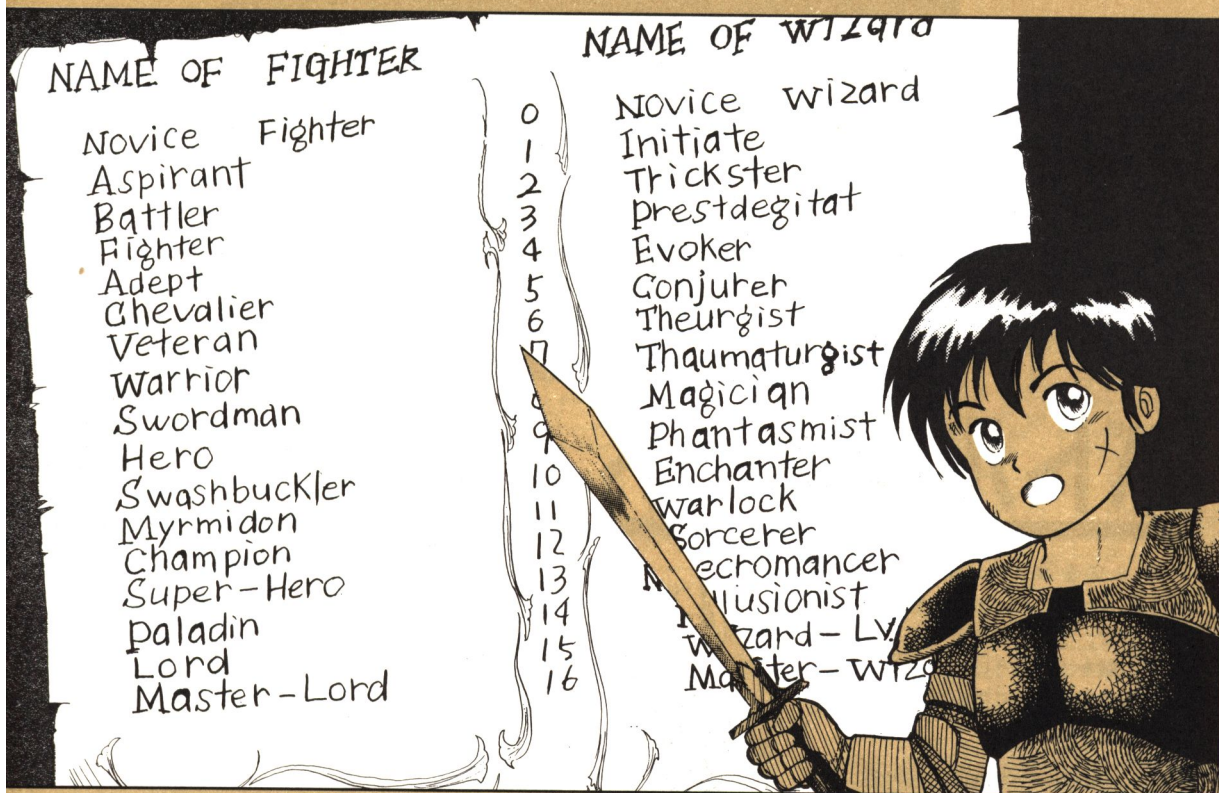 NAME OF FIGHTER
Novice Fighter
Aspirant
Battler
Fighter
Adept
Chevalier
Veteran
Warrior
Swordman
Hero
Swashbuckler
Myrmidon
Champion
Super-Hero
Paladin
Lord
Master-Lord
0
1
2
3
4
5
6
7
9
10
11
12
13
14
15
16
NAME OF Wizard
Novice Wizard
Initiate
Trickster
Prestdegitat
Evoker
Conjurer
Theurgist
Thaumaturgist
Magician
Phantasmist
Enchanter
Warlock
Sorcerer
Necromancer
Illusionist
Wizard-Lv
Master-Wiza